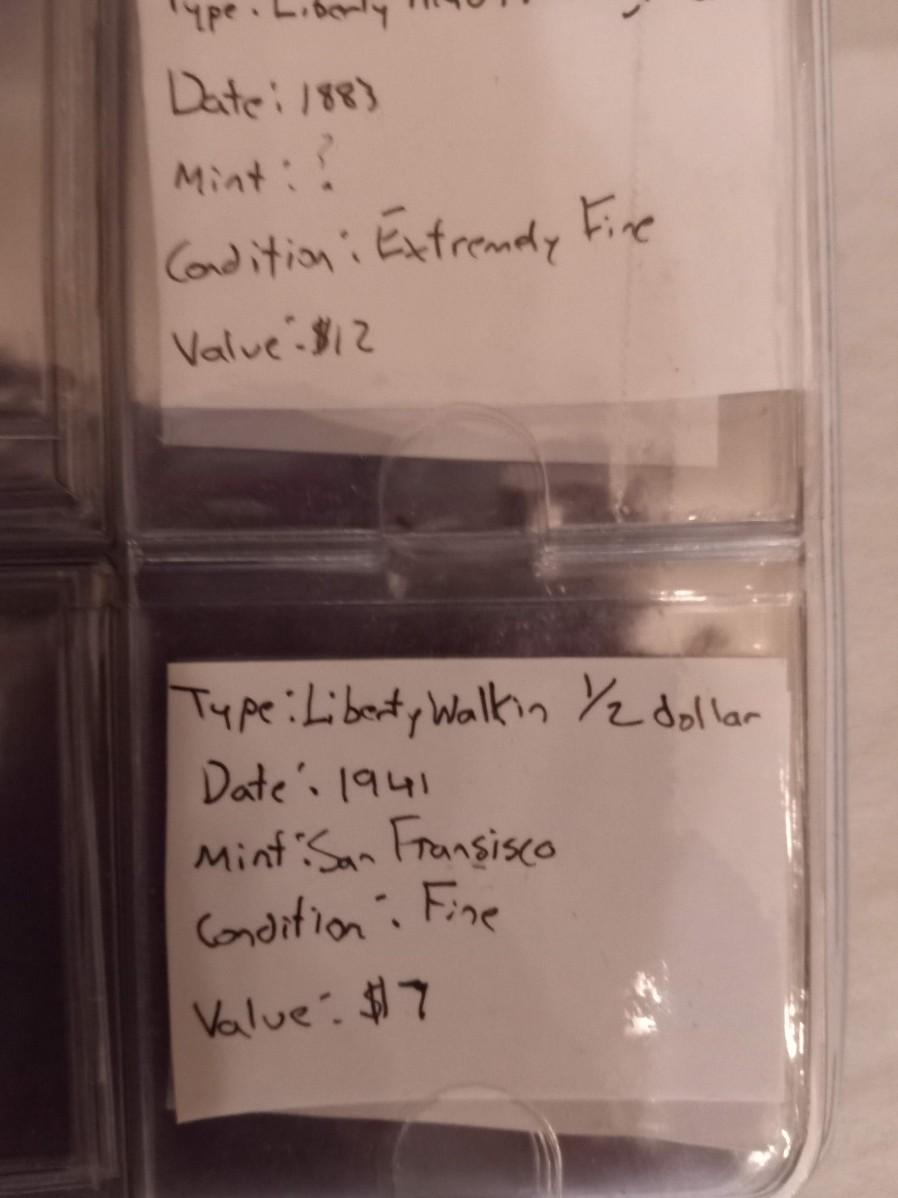 Type: Liberty
Date: 1883
Mint: ?
Condition: Extremely Fine
Value: $12
Type: Liberty Walkin 1/2 dollar
Date: 1941
Mint: San Fransisco
Condition: Fine
Value: $7